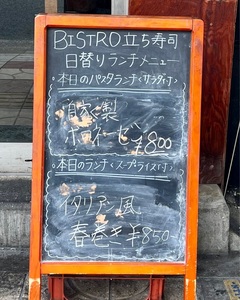 BISTRO 立ち寿司
日替りランチメニュー
本日のパスタランチ(サラダ付)
自家製
ボロネーゼ
¥800
本日のランチ(スープライス付)
イタリアン風
春巻き ¥850-